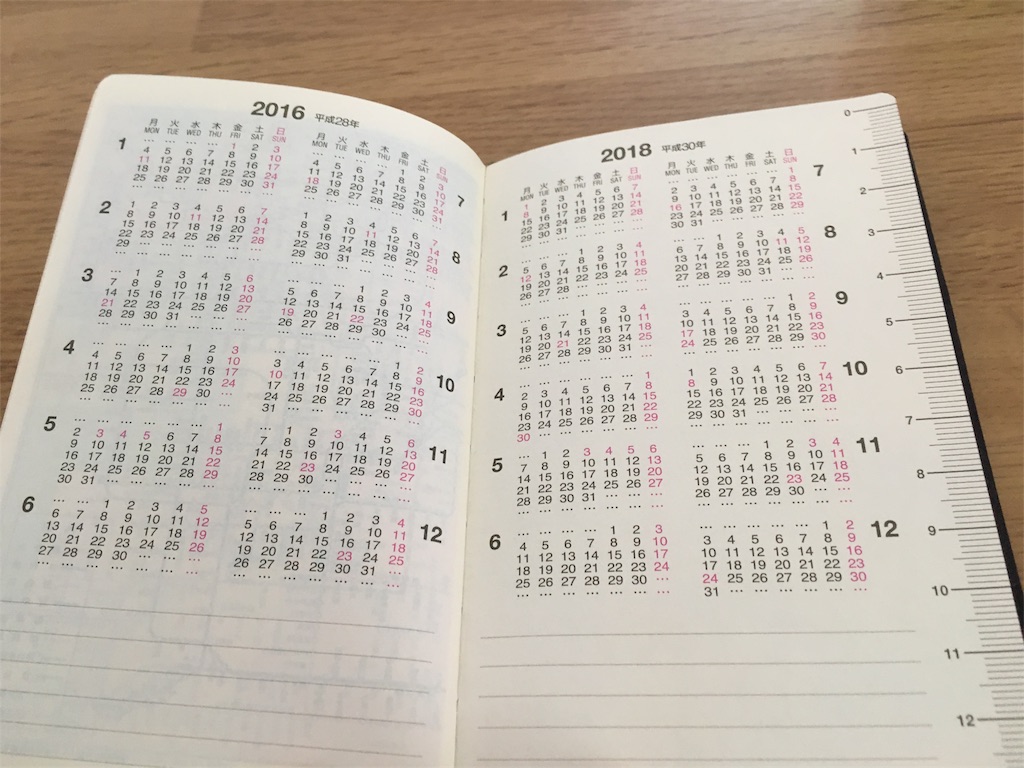 2016 平成28年
月 火 水 木 金 土 日
MON TUE WED THU FRI SAT SUN
1
1 2 3
4 5 6 7 8 9 10
11 12 13 14 15 16 17
18 19 20 21 22 23 24
25 26 27 28 29 30 31
2
1 2 3 4 5 6 7
8 9 10 11 12 13 14
15 16 17 18 19 20 21
22 23 24 25 26 27 28
29
3
1 2 3 4 5 6
7 8 9 10 11 12 13
14 15 16 17 18 19 20
21 22 23 24 25 26 27
28 29 30 31
4
1 2 3
4 5 6 7 8 9 10
11 12 13 14 15 16 17
18 19 20 21 22 23 24
25 26 27 28 29 30
5
1
2 3 4 5 6 7 8
9 10 11 12 13 14 15
16 17 18 19 20 21 22
23 24 25 26 27 28 29
30 31
6
1 2 3 4 5
6 7 8 9 10 11 12
13 14 15 16 17 18 19
20 21 22 23 24 25 26
27 28 29 30
月 火 水 木 金 土 日
MON TUE WED THU FRI SAT SUN
7
1 2 3
4 5 6 7 8 9 10
11 12 13 14 15 16 17
18 19 20 21 22 23 24
25 26 27 28 29 30 31
8
1 2 3 4 5 6 7
8 9 10 11 12 13 14
15 16 17 18 19 20 21
22 23 24 25 26 27 28
29 30 31
9
1 2 3 4
5 6 7 8 9 10 11
12 13 14 15 16 17 18
19 20 21 22 23 24 25
26 27 28 29 30
10
1 2
3 4 5 6 7 8 9
10 11 12 13 14 15 16
17 18 19 20 21 22 23
24 25 26 27 28 29 30
31
11
1 2 3 4 5 6
7 8 9 10 11 12 13
14 15 16 17 18 19 20
21 22 23 24 25 26 27
28 29 30
12
1 2 3 4
5 6 7 8 9 10 11
12 13 14 15 16 17 18
19 20 21 22 23 24 25
26 27 28 29 30 31
2018 平成30年
月 火 水 木 金 土 日
MON TUE WED THU FRI SAT SUN
1
1 2 3 4 5 6 7
8 9 10 11 12 13 14
15 16 17 18 19 20 21
22 23 24 25 26 27 28
29 30 31
2
1 2 3 4
5 6 7 8 9 10 11
12 13 14 15 16 17 18
19 20 21 22 23 24 25
26 27 28
3
1 2 3 4
5 6 7 8 9 10 11
12 13 14 15 16 17 18
19 20 21 22 23 24 25
26 27 28 29 30 31
4
1
2 3 4 5 6 7 8
9 10 11 12 13 14 15
16 17 18 19 20 21 22
23 24 25 26 27 28 29
30
5
1 2 3 4 5 6
7 8 9 10 11 12 13
14 15 16 17 18 19 20
21 22 23 24 25 26 27
28 29 30 31
6
1 2 3
4 5 6 7 8 9 10
11 12 13 14 15 16 17
18 19 20 21 22 23 24
25 26 27 28 29 30
月 火 水 木 金 土 日
MON TUE WED THU FRI SAT SUN
7
1
2 3 4 5 6 7 8
9 10 11 12 13 14 15
16 17 18 19 20 21 22
23 24 25 26 27 28 29
30 31
8
1 2 3 4 5
6 7 8 9 10 11 12
13 14 15 16 17 18 19
20 21 22 23 24 25 26
27 28 29 30 31
9
1 2
3 4 5 6 7 8 9
10 11 12 13 14 15 16
17 18 19 20 21 22 23
24 25 26 27 28 29 30
10
1 2 3 4 5 6 7
8 9 10 11 12 13 14
15 16 17 18 19 20 21
22 23 24 25 26 27 28
29 30 31
11
1 2 3 4
5 6 7 8 9 10 11
12 13 14 15 16 17 18
19 20 21 22 23 24 25
26 27 28 29 30
12
1 2
3 4 5 6 7 8 9
10 11 12 13 14 15 16
17 18 19 20 21 22 23
24 25 26 27 28 29 30
31
0
1
2
3
4
5
6
7
8
9
10
11
12